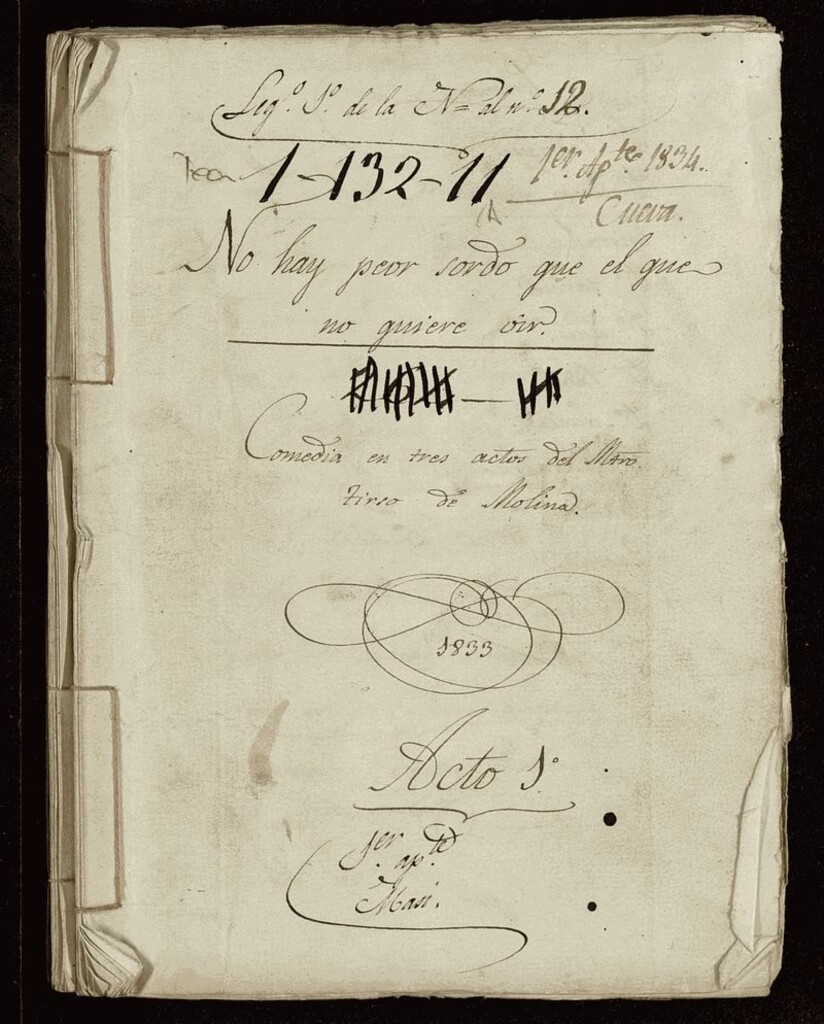 Leg.º 1.º de la N= al n.º 12.
Tea 1-132-11
1er. Ap.te 1834.
Cueva.
A
No hay peor sordo que el que
no quiere oir.
Comedia en tres actos del Mtro.
Tirso de Molina.
1833
Acto 1º
1er ap.te